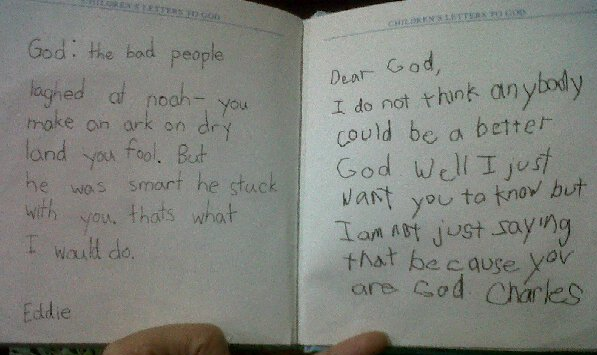 CHILDREN'S LETTERS TO GOD
God: the bad people
laghed at noah- you
make an ark on dry
land you fool. But
he was smart he stuck
with you. thats what
I would do.
Eddie
CHILDREN'S LETTERS TO GOD
Dear God,
I do not think anybody
could be a better
God Well I just
want you to know but
I am not just saying
that because you
are God Charles